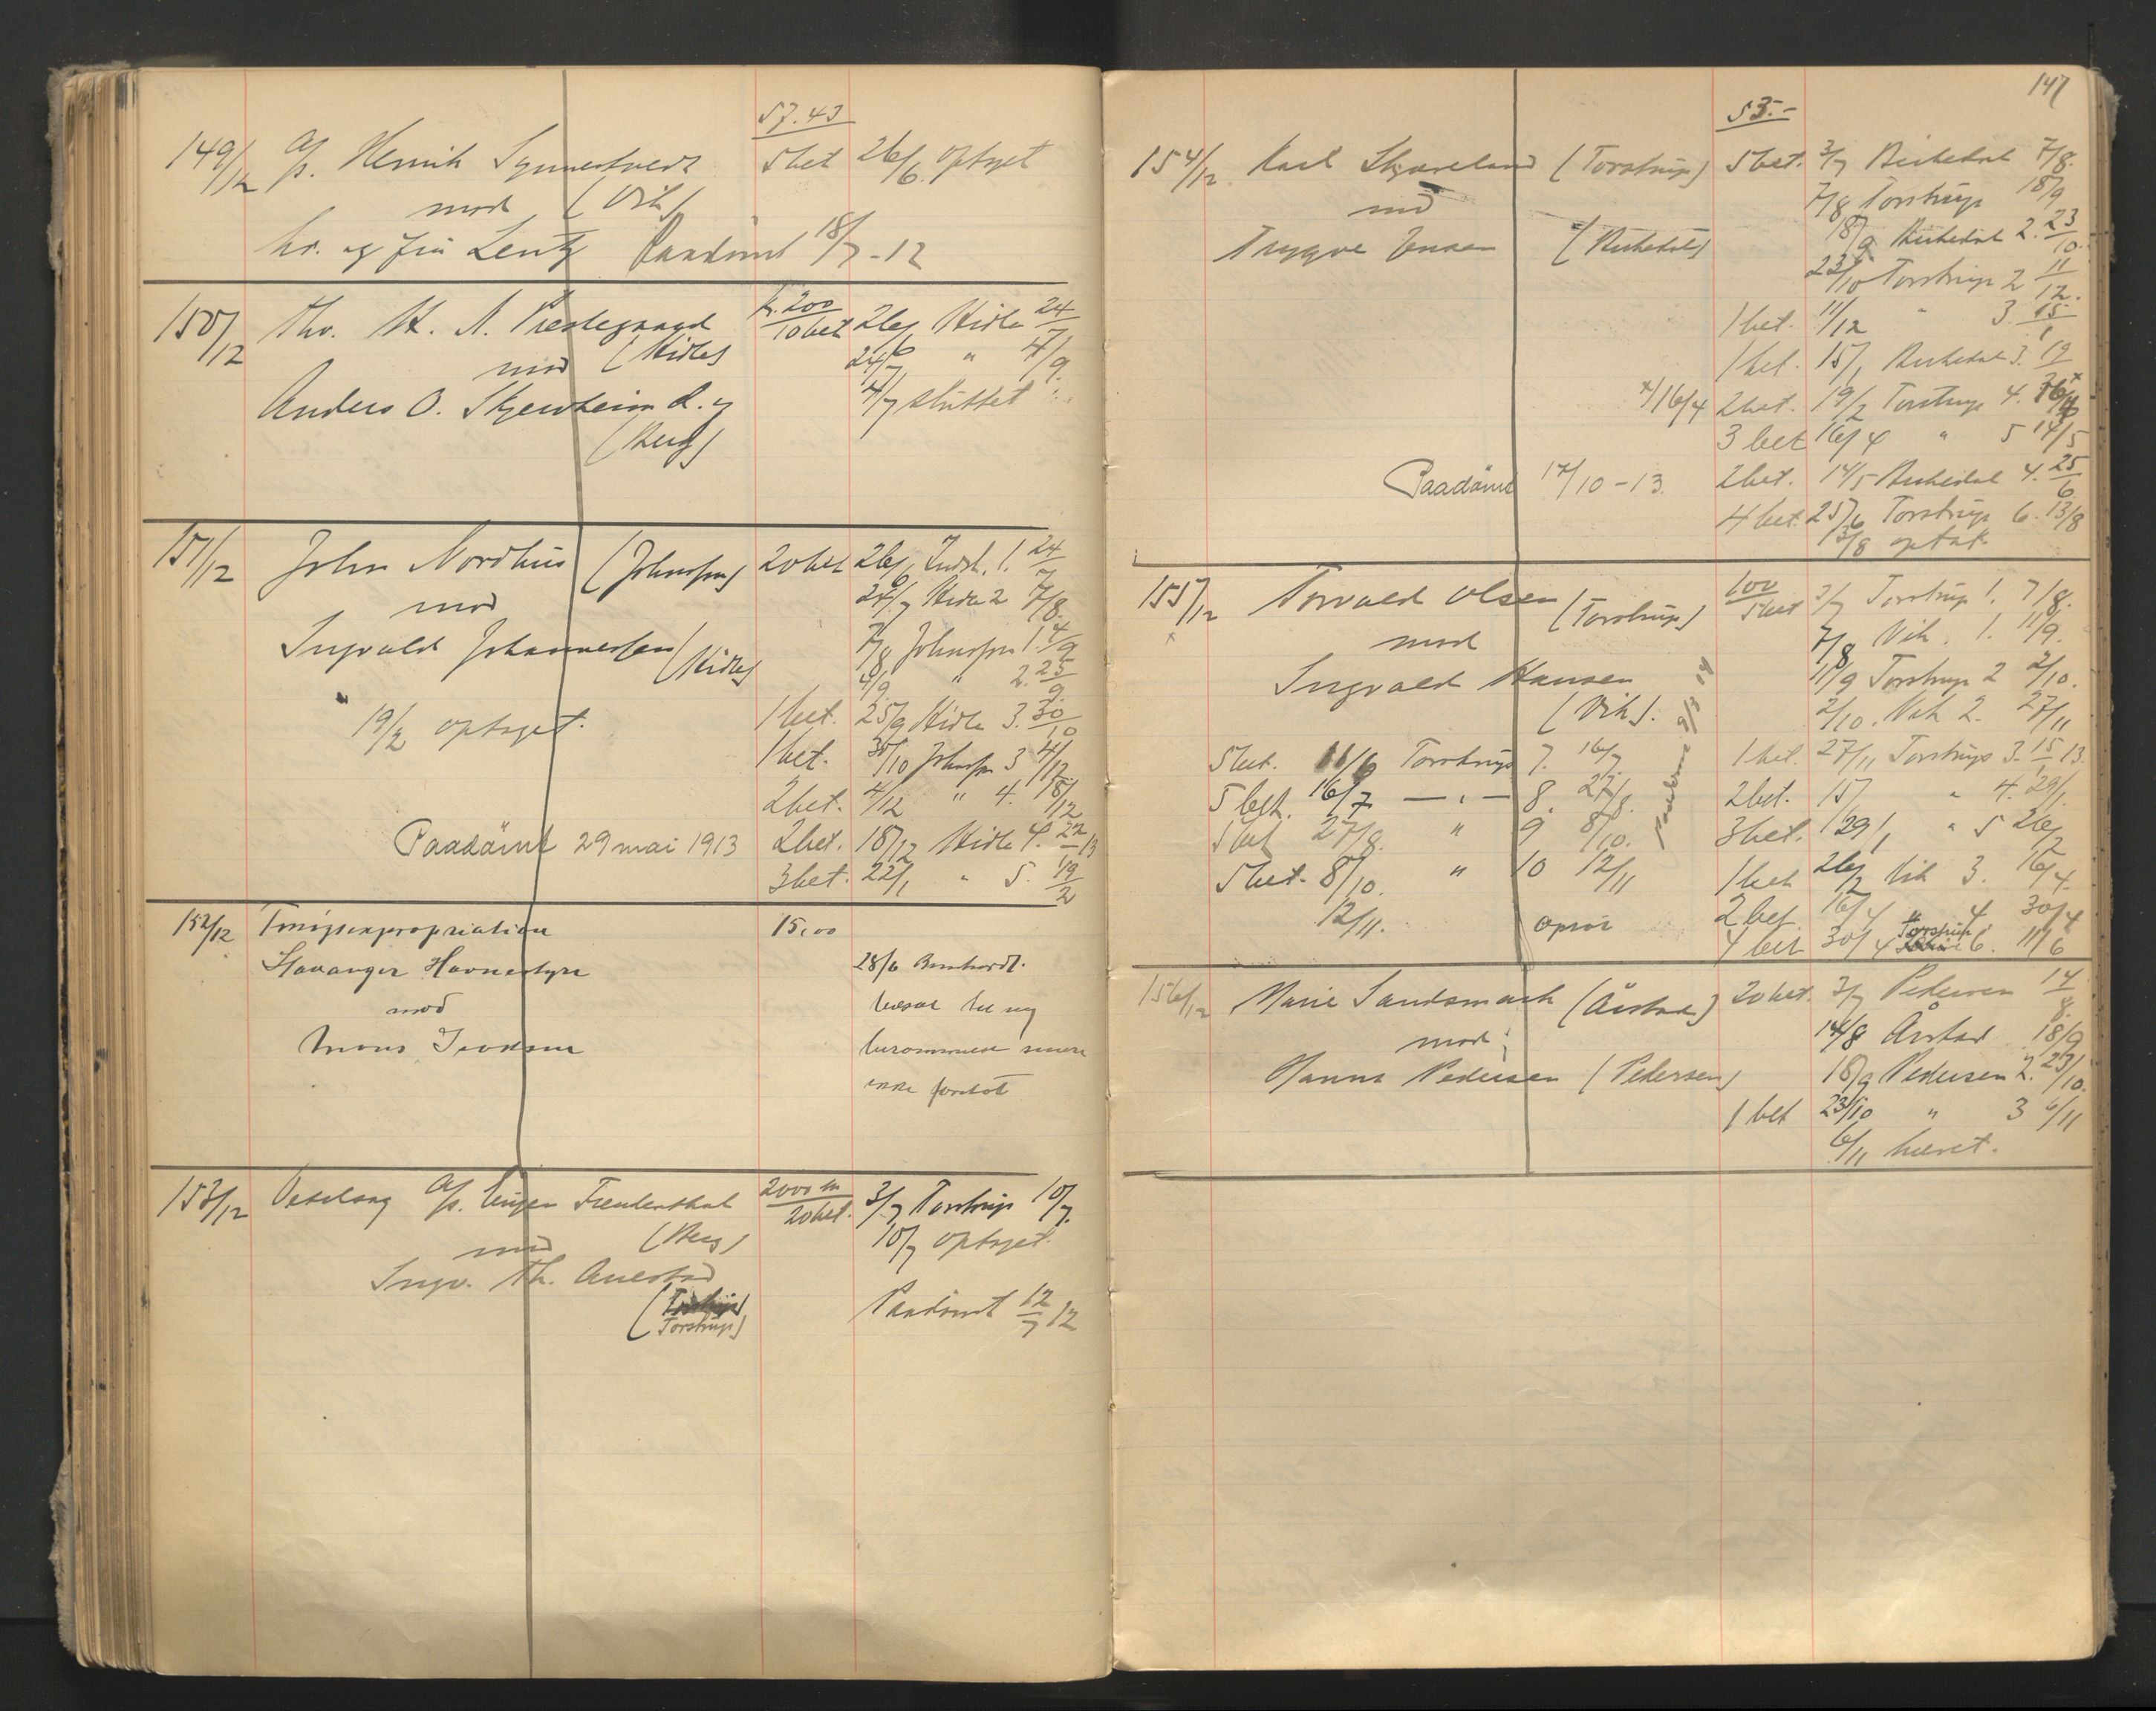 57.43
149/12 A/S. Henrik Synnestvedt 5 bet 26/6. optaget
mod (Vik)
hr. og fru Lentz Paadömt 18/7-12
150/12 Thv. H. A. Prestegaard kr. 200 / 10 bet 26/6 Hidle 24/7
mod (Hidle) 24/7 " 4/9.
Anders O. Skjerveheim d. y 4/9 sluttet
(Berg)
151/12 John Nordhus (Johnsson) 20 bet 26/6 Indst. 1. 24/7
mod 24/7 Hidle 2 7/8.
Ingvald Johannessen (Hidle) 7/8 Johnsson 1 4/9
4/9. " 2. 25/9.
19/2 optaget. 1 bet. 25/9 Hidle 3. 30/10
1 bet. 30/10 Johnsson 3 4/12
2 bet. 4/12 " 4. 18/12
Paadömt 29 mai 1913 2 bet. 18/12 Hidle 4. 22/1 13
3 bet. 22/1 " 5. 19/2
152/12 Tvangsexpropriation 15,00
Stavanger Havnestyre 28/6
mod
Mons 
ikke
153/12 Vexelsag A/S. Eugen Freudenthal 2000 m / 20 bet. 3/7 Torstrup 10/7.
mod (Berg) 10/7 optaget.
Ingv. Th. Auestad
(Torstrup) Paadömt 12/7 12
147
53.-
154/12 Karl Skjæveland (Torstrup) 5 bet. 3/7 Birkedal 7/8.
mod 7/8 Torstrup 18/9
Trygve Jensen (Birkedal) 18/9 Birkedal 2. 23/10.
23/10 Torstrup 2 11/12.
1 bet. 11/12 " 3. 15/1
1 bet. 15/1 Birkedal 3. 19/2
x/16/4 2 bet. 19/2 Torstrup 4. 16/4 x
3 bet 16/4 " 5 14/5
Paadömt 17/10-13. 2 bet. 14/5 Birkedal 4. 25/6.
4 bet. 25/6 Torstrup 6. 13/8
13/8 optat.
155/12 Torvald Olsen (Torstrup) 100 / 5 bet 3/7 Torstrup 1. 7/8.
x mod 7/8 Vik. 1. 11/9.
Ingvald Hansen 11/9 Torstrup 2 2/10.
(Vik). 2/10. Vik 2. 27/11
Paadömt 9/3 14
5 bet. 11/6 Torstrup 7. 16/7. 1 bet. 27/11 Torstrup 3. 15/1 13.
5 bet. 16/7 — " — 8. 27/8. 2 bet. 15/1 " 4. 29/1.
5 bet 27/8. " 9 8/10. 3 bet. 29/1 " 5 26/2
5 bet. 8/10. " 10 12/11 1 bet 26/2 Vik 3. 16/4.
12/11. 2 bet. 16/4 " 4 30/4
4 bet 30/4 Torstrup 6. 11/6
156/12 Marie Sandsmark (Årstad) 20 bet. 3/7 Pedersen 14/8.
mod 14/8 Årstad 18/9
Hanna Pedersen (Pedersen) 18/9 Pedersen 2. 23/10.
1 bet 23/10 " 3 6/11
6/11 hævet.